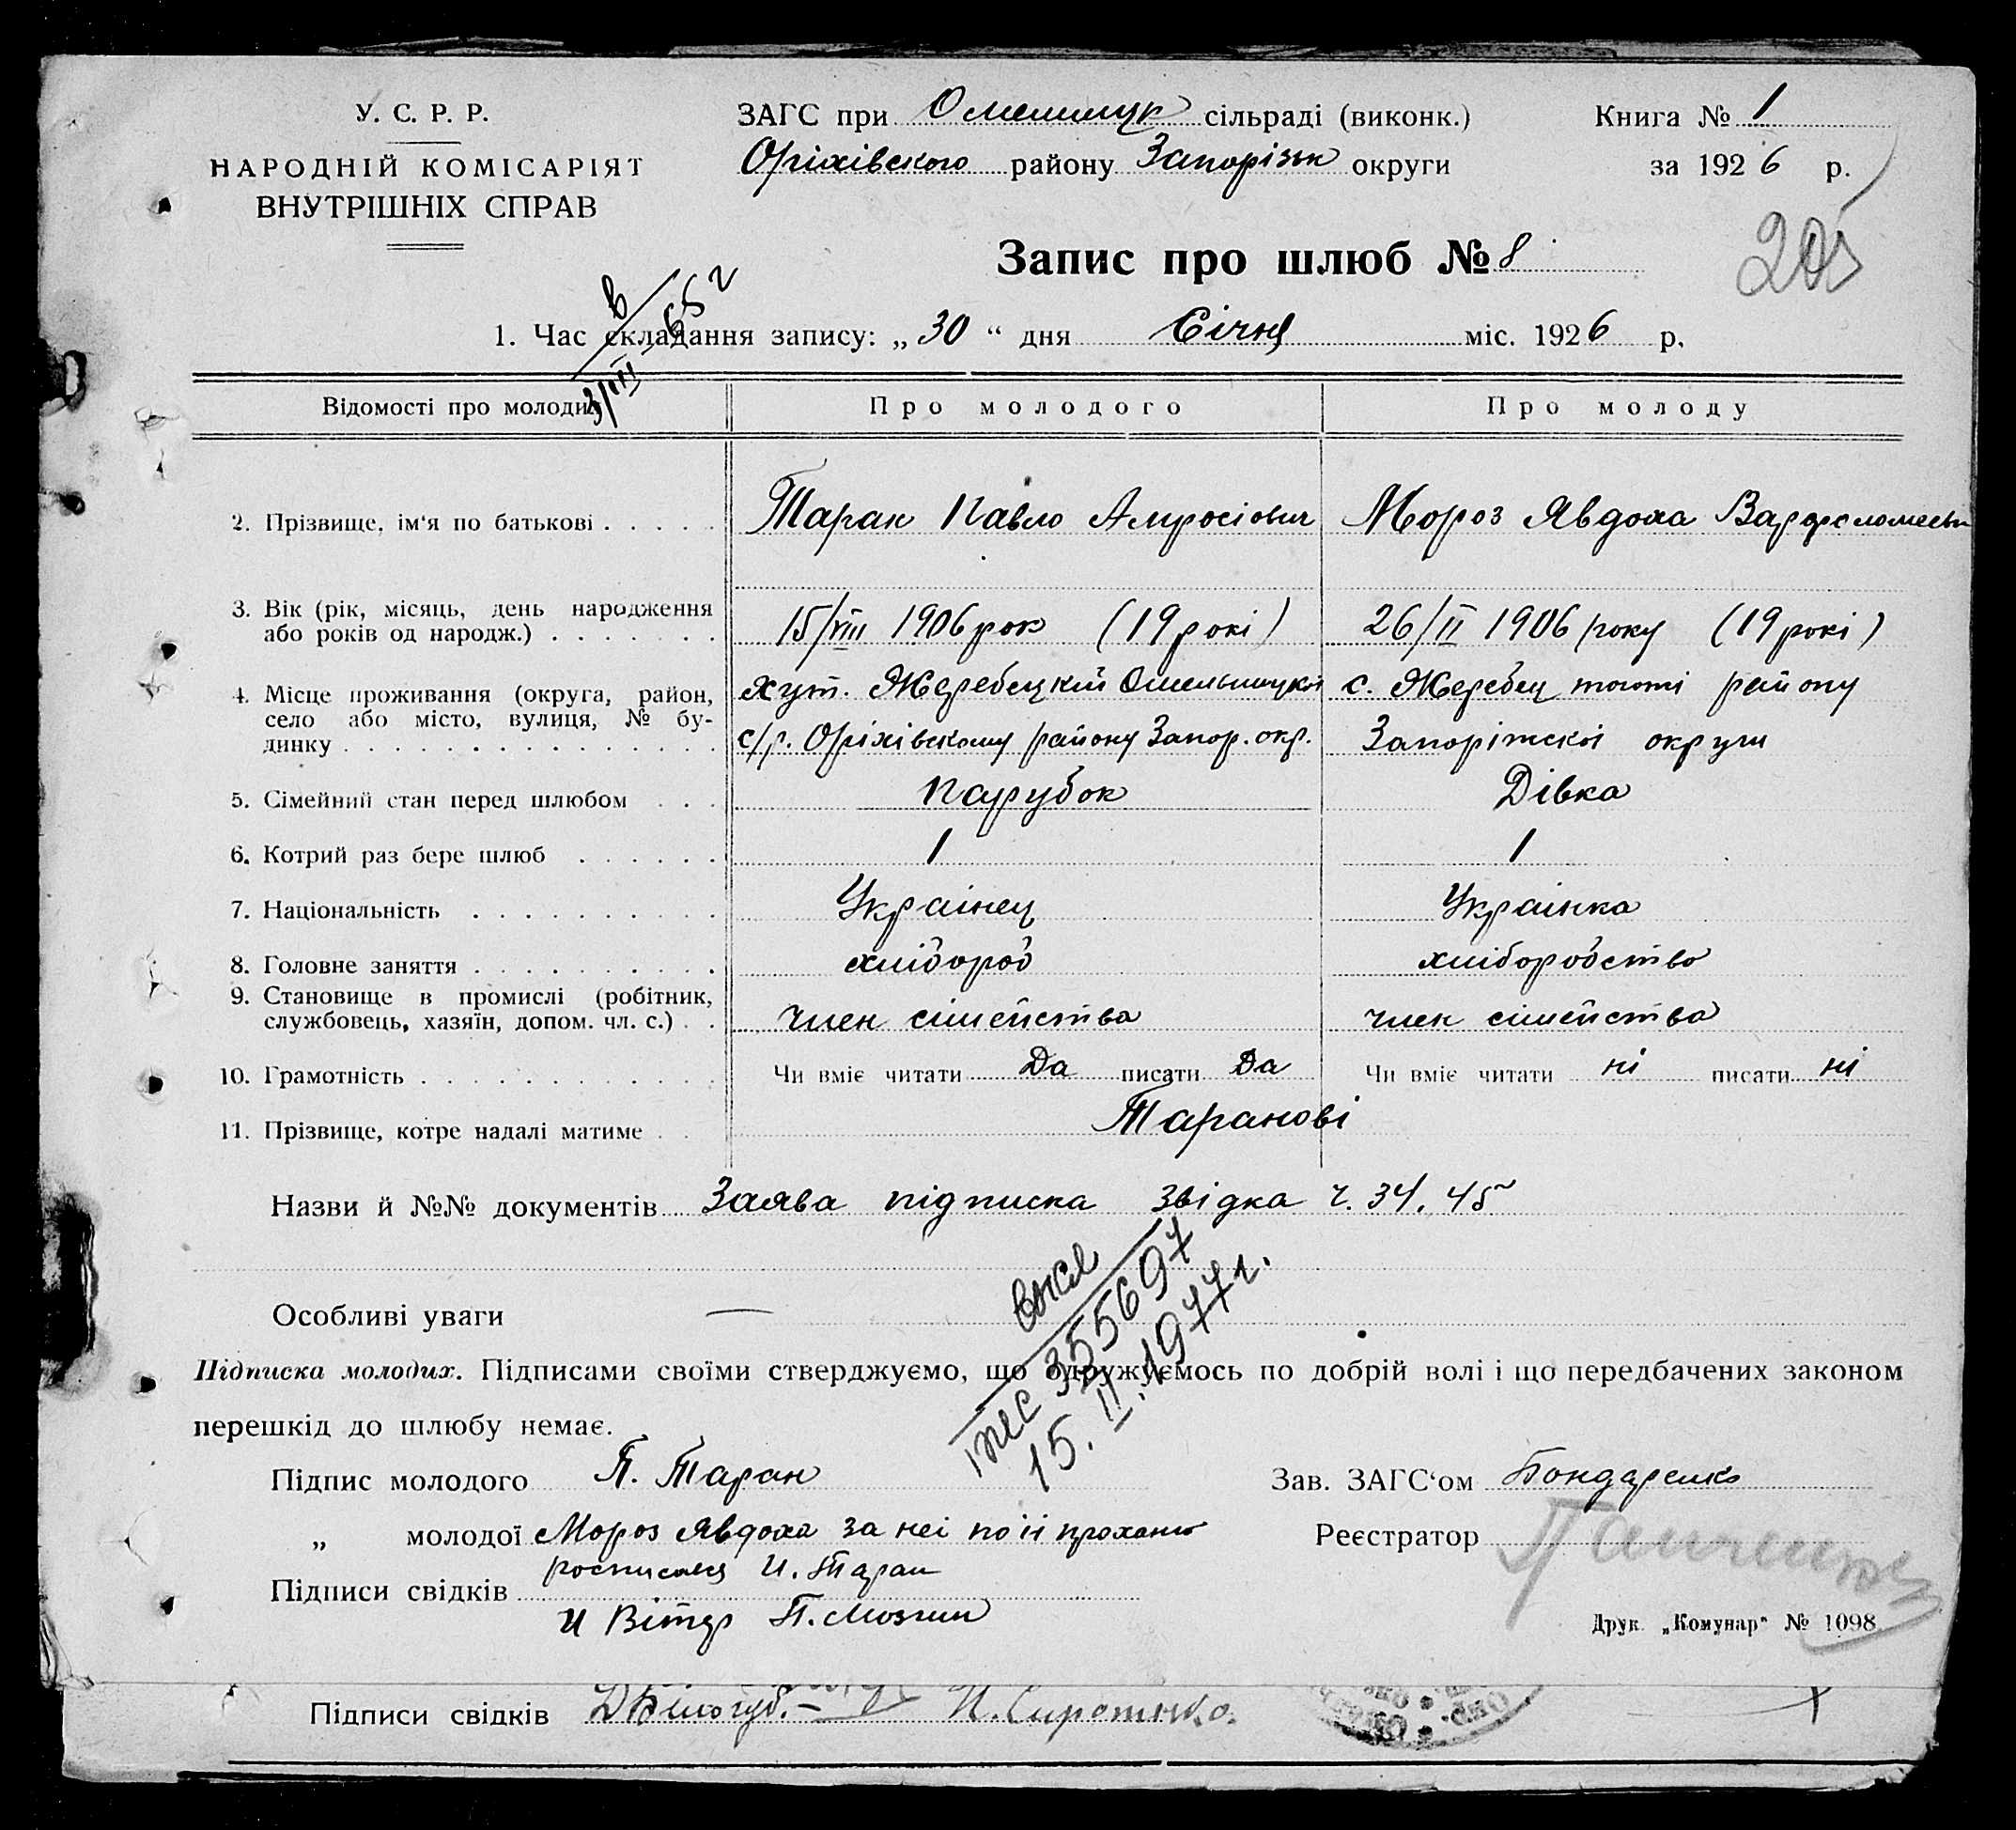 У. С. Р. Р.
НАРОДНІЙ КОМІСАРІЯТ
ВНУТРІШНІХ СПРАВ
ЗАГС при Омельницк сільраді (виконк.)
Оріхівского району Запорізьк округи
Книга № 1
за 1926 р.
205
Запис про шлюб № 8
1. Час складання запису: „30“ дня Січня міс. 1926 р.
Відомості про молодих
Про молодого
Про молоду
2. Прізвище, ім‘я по батькові
Таран Павло Амросіович
Мороз Явдоха Варфоломеевн
3. Вік (рік, місяць, день народження
або років од народж.)
15/VIII 1906 рок (19 рокі)
26/II 1906 року (19 рокі)
4. Місце проживання (округа, район,
село або місто, вулиця, № бу-
динку
хут. Жеребецкий Омельницкоі
с/р. Оріхівскому району Запор. окр.
с. Жеребец району
Запоріжскоі округи
5. Сімейний стан перед шлюбом
Парубок
Дівка
6. Котрий раз бере шлюб
1
1
7. Національність
Украінец
Украінка
8. Головне заняття
хлібороб
хліборобство
9. Становище в промислі (робітник,
службовець, хазяїн, допом. чл. с.)
член сімейства
член сімейства
10. Грамотність
Чи вміє читати Да писати Да
Чи вміє читати ні писати ні
11. Прізвище, котре надалі матиме
Таранові
Назви й №№ документів Заява підписка звідка ч. 34, 45
Особливі уваги —
355697
15.II.1977г.
Підписка молодих. Підписами своїми стверджуємо, що одружуємось по добрій волі і що передбачених законом
перешкід до шлюбу немає.
Підпис молодого П. Таран
„ молодої Мороз Явдоха за неі по іі проханю
росписався И. Таран
Підписи свідків
И Вітер П. Мозгин
Зав. ЗАГС‘ом Бондаренко
Реєстратор Панченко
Друк. „Комунар“ № 1098
Підписи свідків Д Білогуб. И. Сиротенко.